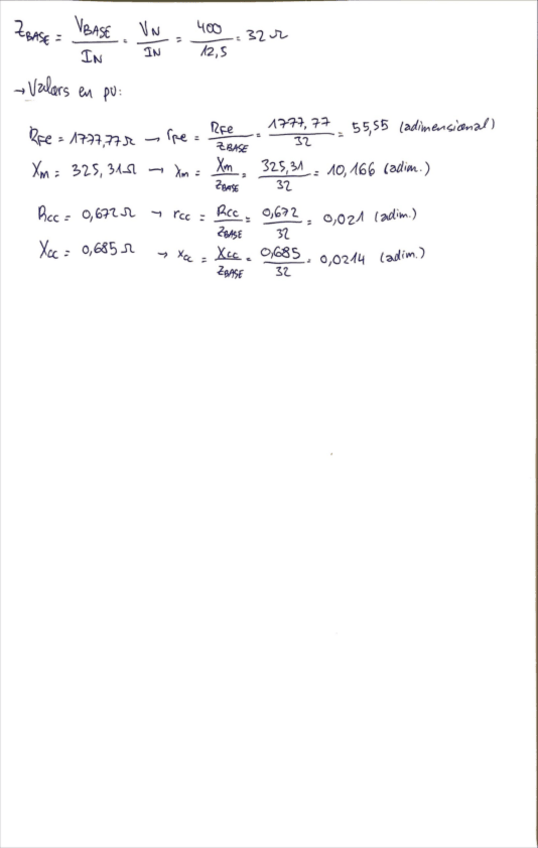 Z_BASE = V_BASE / I_N = V_N / I_N = 400 / 12,5 = 32 Ω
→ Valors en pu:
R_Fe = 1777,77 Ω → r_Fe = R_Fe / Z_BASE = 1777,77 / 32 = 55,55 (adimensional)
X_m = 325,31 Ω → x_m = X_m / Z_BASE = 325,31 / 32 = 10,166 (adim.)
R_cc = 0,672 Ω → r_cc = R_cc / Z_BASE = 0,672 / 32 = 0,021 (adim.)
X_cc = 0,685 Ω → x_cc = X_cc / Z_BASE = 0,685 / 32 = 0,0214 (adim.)